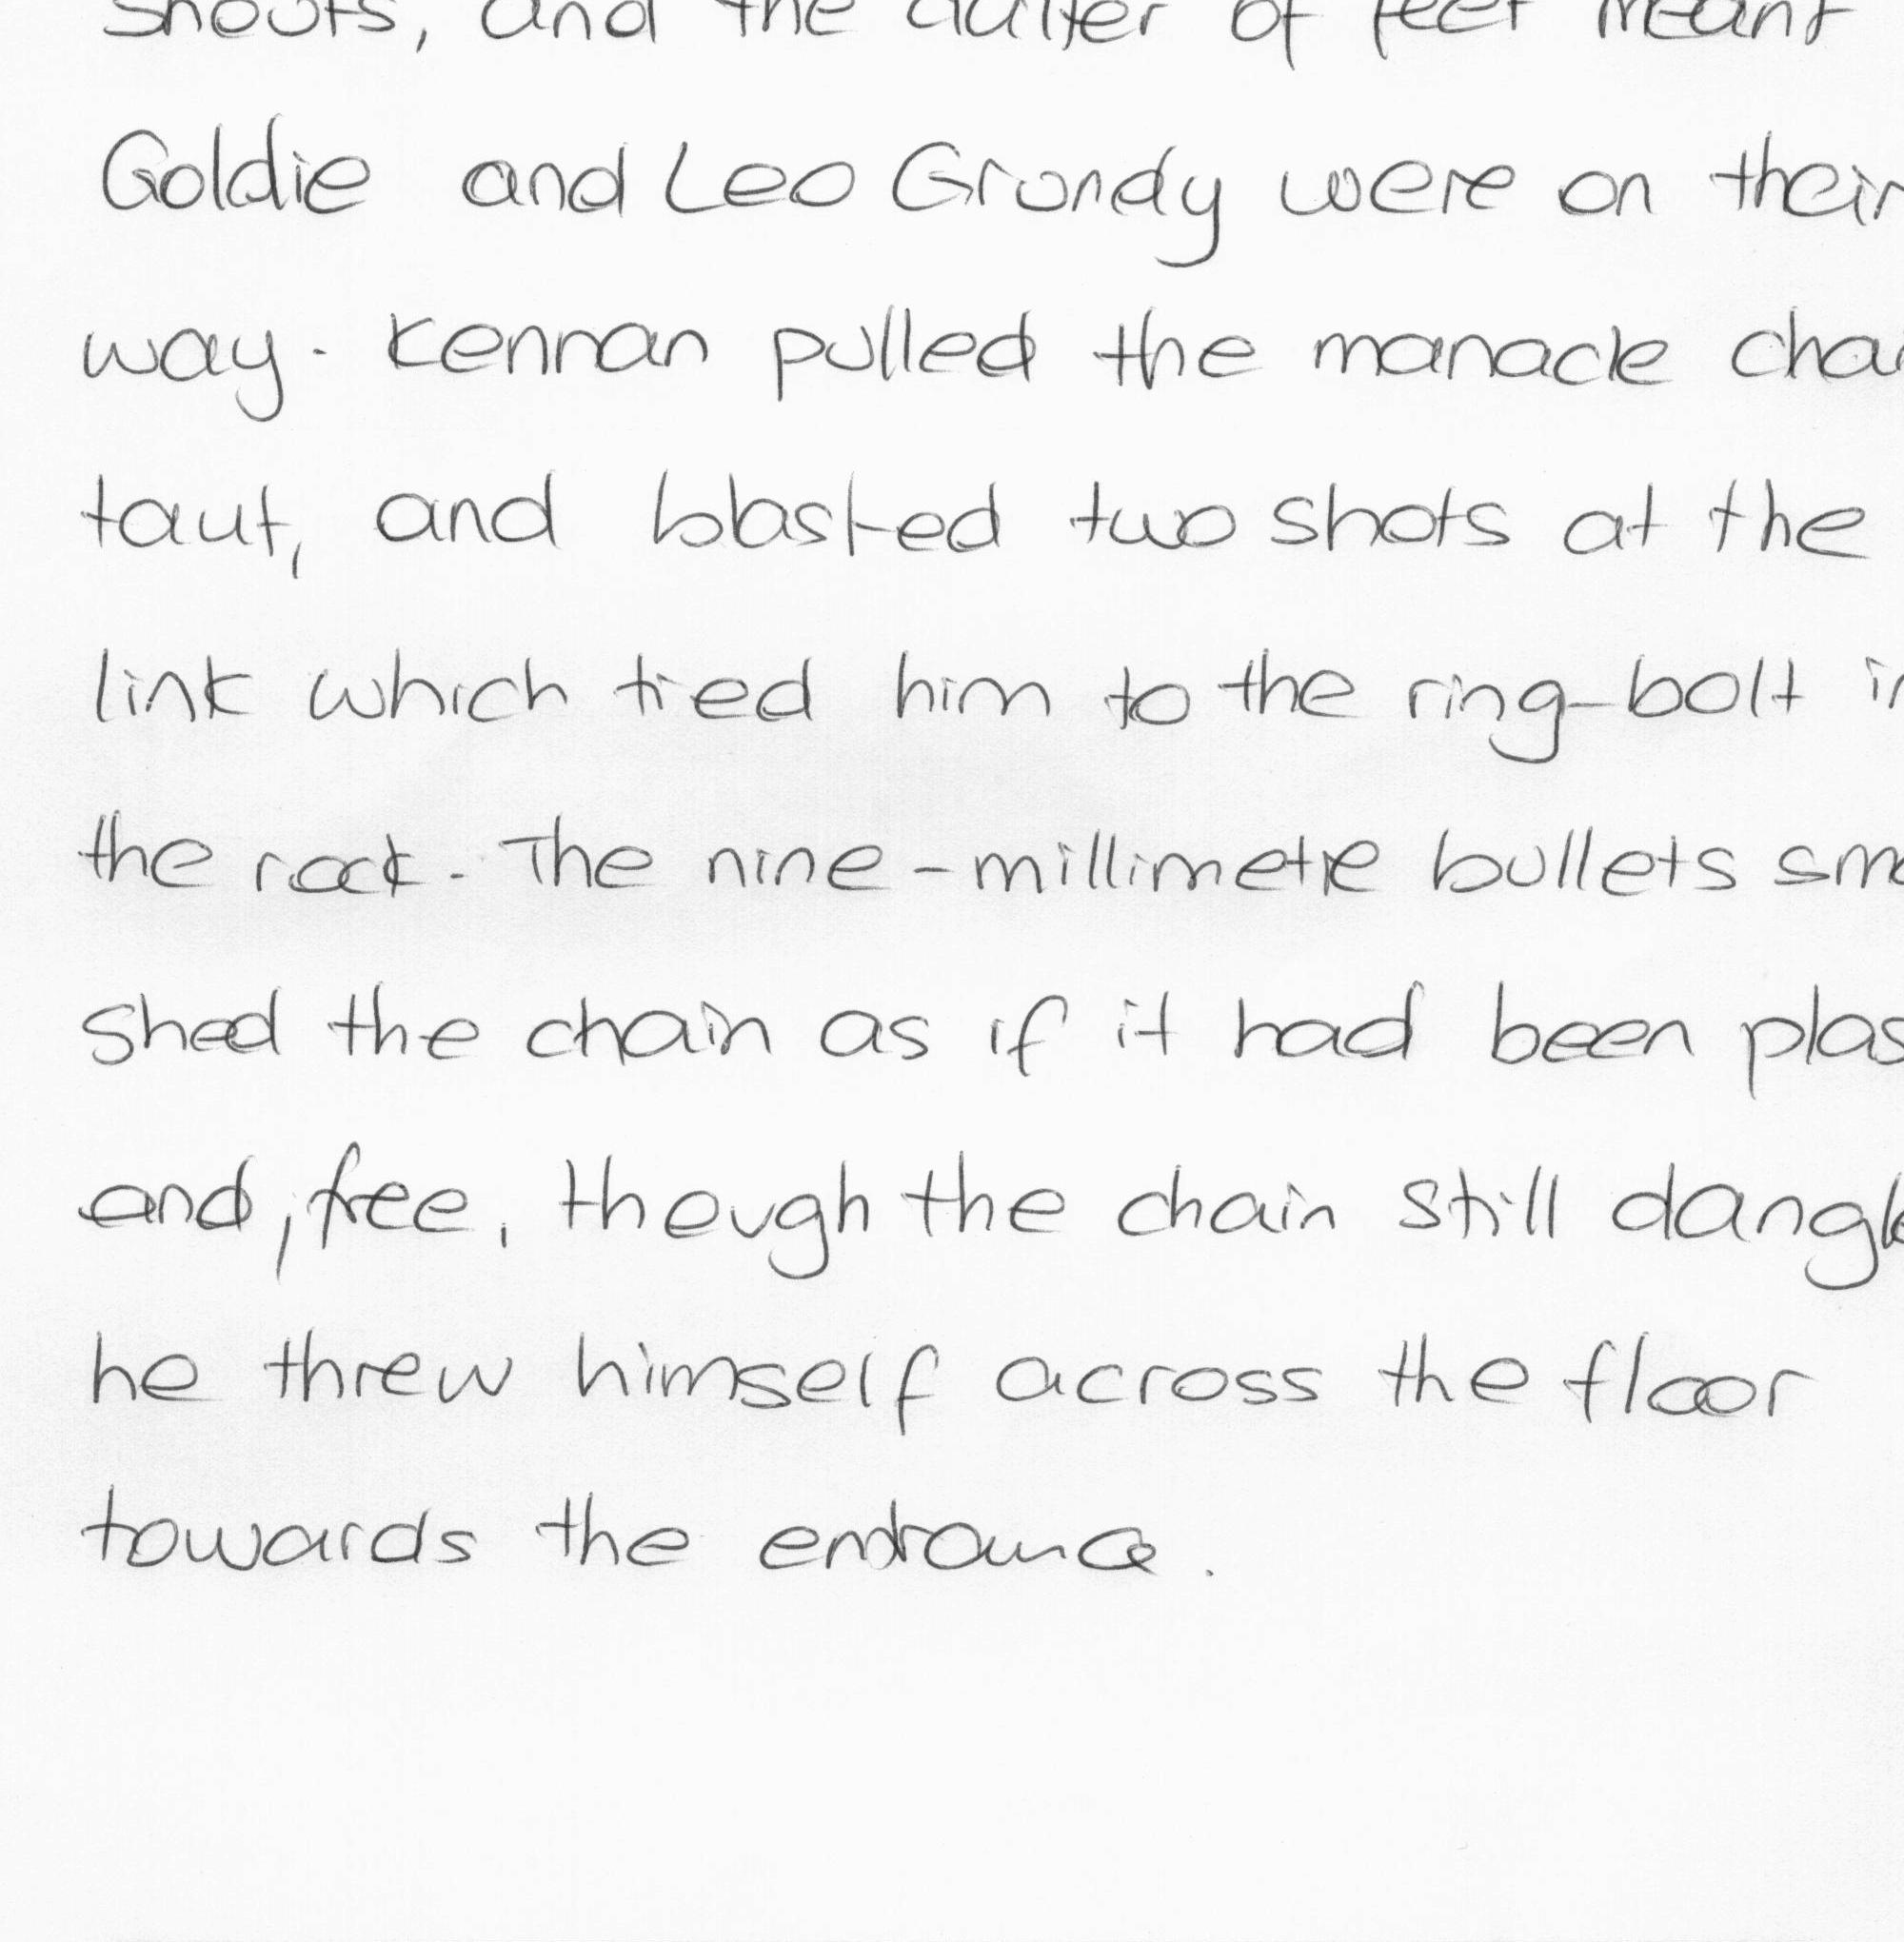 shouts, and the clutter of feet meant
Goldie and Leo Grundy were on their
way. Kennan pulled the manacle
taut, and blasted two shots at the
link which tied him to the ring-bolt in
the rock. The nine-millimetre bullets
shed the chain as if it had been
and, free, though the chain still
he threw himself across the floor
towards the entrance.